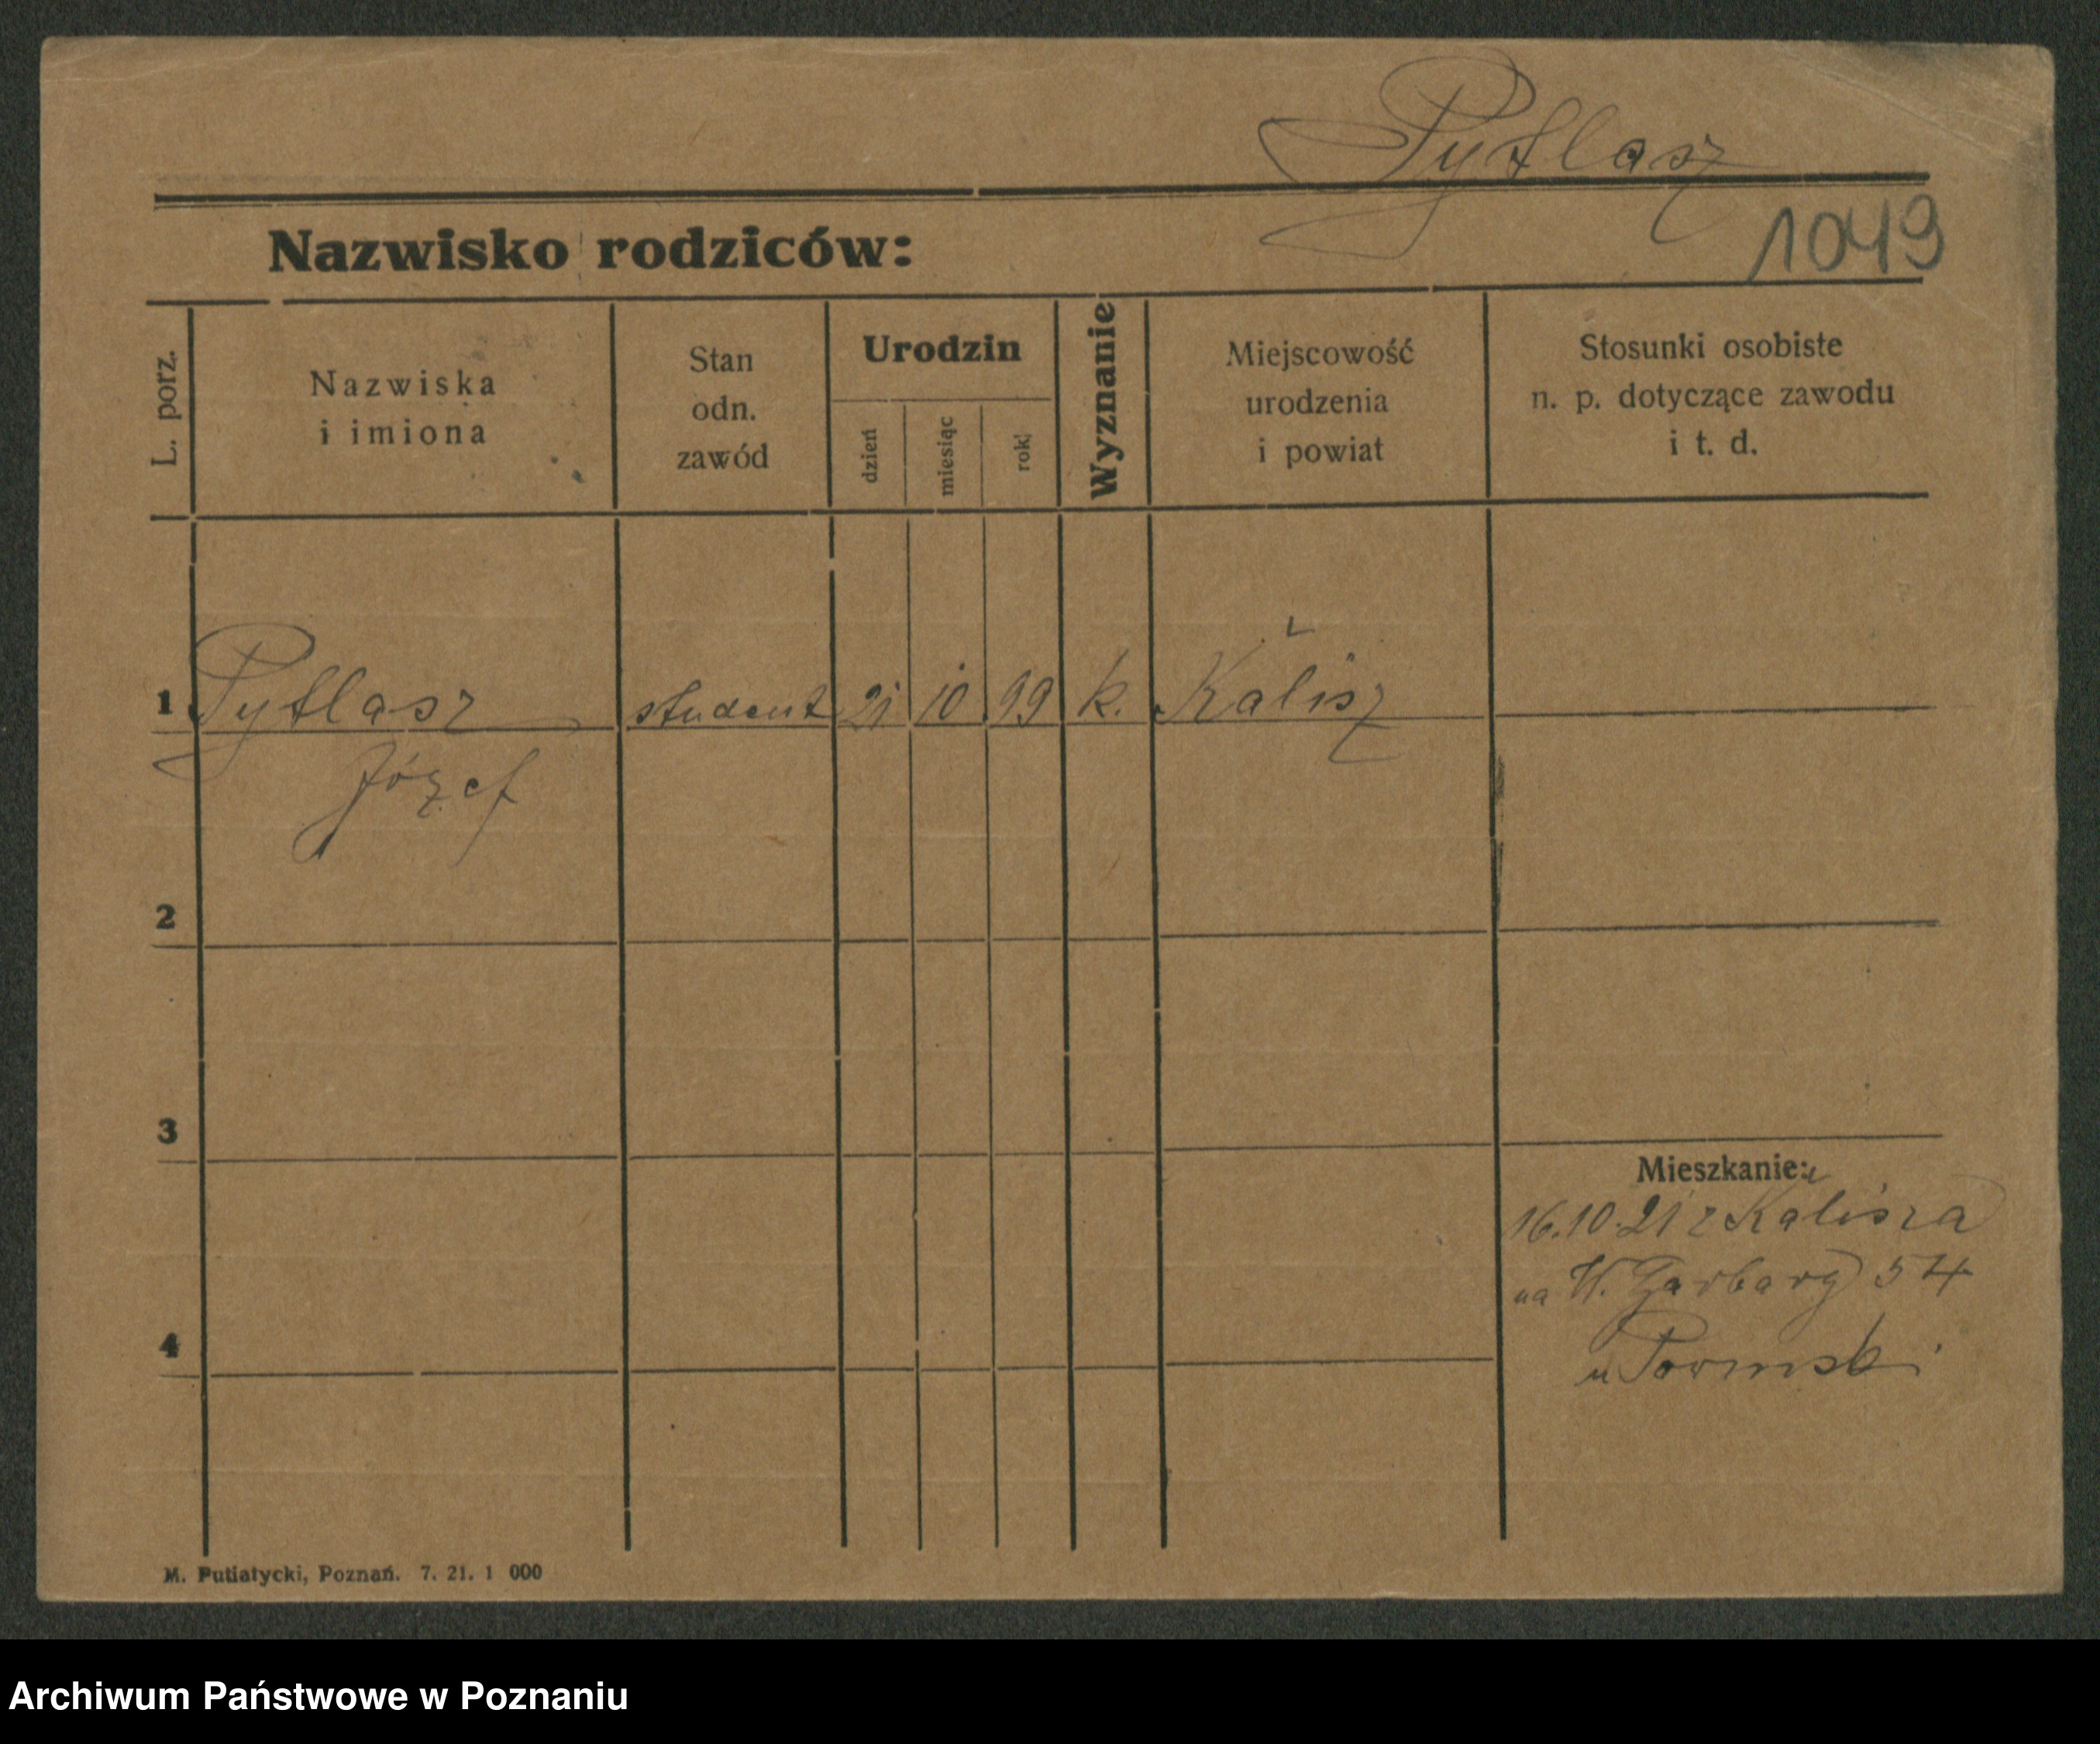 Pytlasz
Nazwisko rodziców:
1049
L. porz.
Nazwiska
i imiona
Stan
odn.
zawód
Urodzin
dzień
miesiąc
rok
Wyznanie
Miejscowość
urodzenia
i powiat
Stosunki osobiste
n. p. dotyczące zawodu
i t. d.
1 Pytlasz student 21 10 99 k. Kalisz
Józef
2
3
Mieszkanie:
16.10.21 z Kalisza
na W. Garbary 54
4
u
M. Putiatycki, Poznań. 7. 21. 1 000
Archiwum Państwowe w Poznaniu